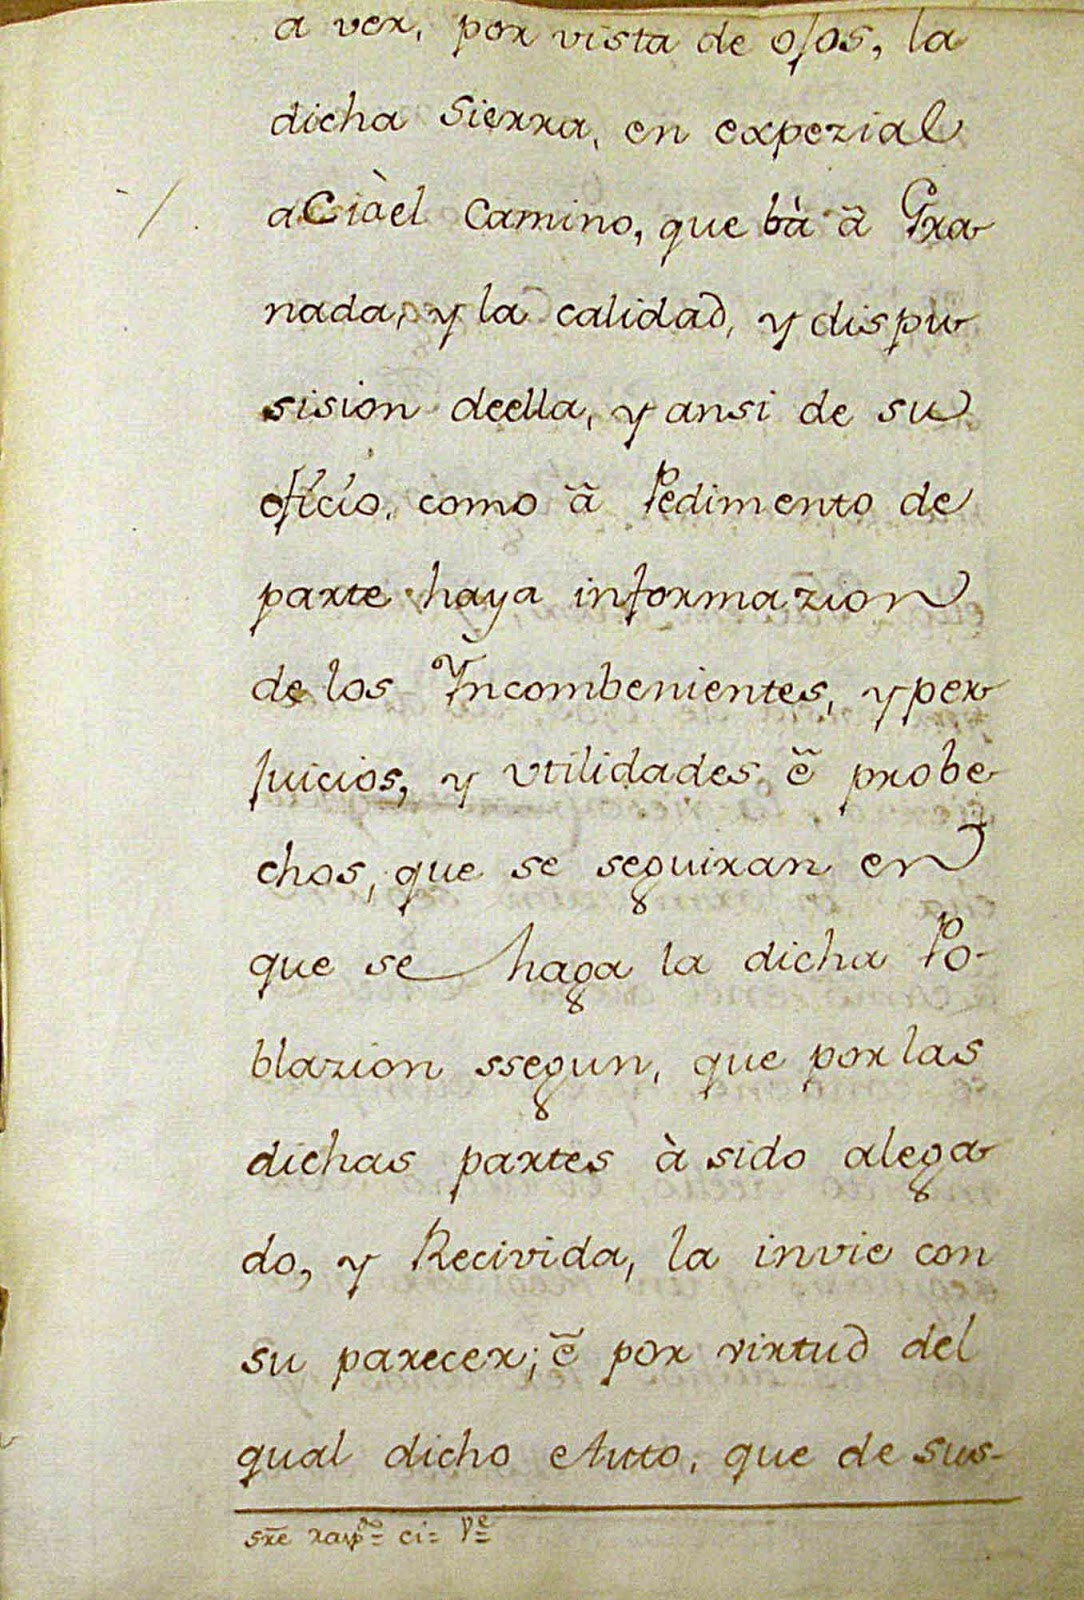 a ver, por vista de ojos, la
dicha Sierra, en expezial
aCiàel Camino, que bà ã Gra
nada, y la calidad, y dispu
sision deella, y ansi de su
oficio, como ã Pedimento de
parte haya informazion
de los Yncombenientes, y per
juicios, y vtilidades ẽ probe
chos, que se seguiran en
que se haga la dicha Po-
blazion ssegun, que por las
dichas partes à sido alega
do, y Recivida, la invie con
su parecer; ẽ por virtud del
qual dicho Auto, que de sus-
sre rasp ci= y e